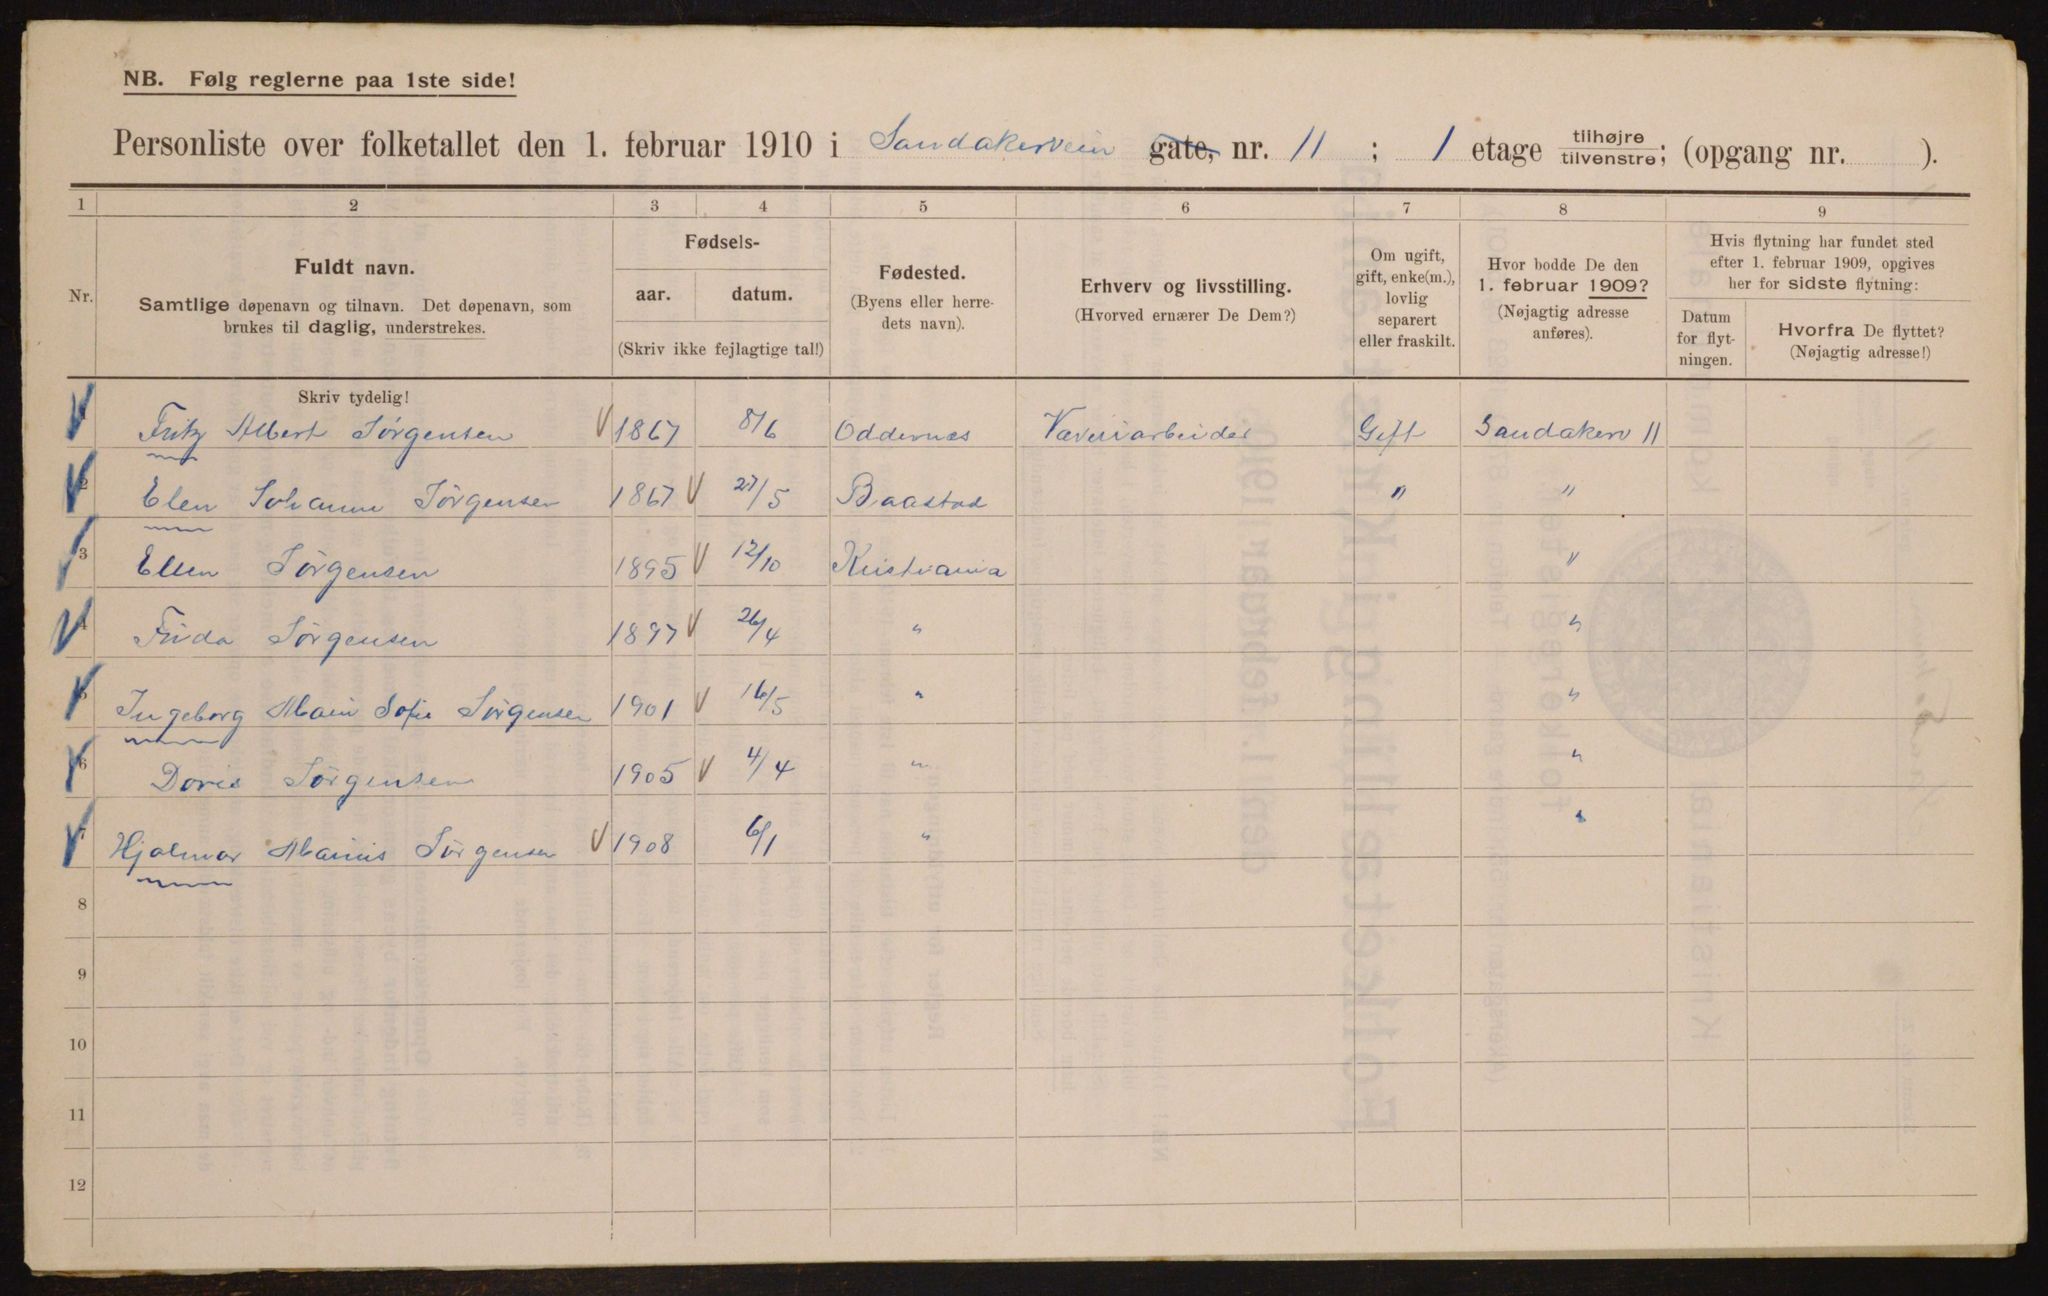 NB. Følg reglerne paa 1ste side!
Personliste over folketallet den 1. februar 1910 i Sandakerveien gate, nr. 11 ; 1 etage tilhøjre/tilvenstre; (opgang nr. ).
1 2 3 4 5 6 7 8 9
Nr.
Fuldt navn.
Samtlige døpenavn og tilnavn. Det døpenavn, som
brukes til daglig, understrekes.
Fødsels-
aar. datum.
(Skriv ikke fejlagtige tal!)
Fødested.
(Byens eller herre-
dets navn).
Erhverv og livsstilling.
(Hvorved ernærer De Dem?)
Om ugift,
gift, enke(m.),
lovlig
separert
eller fraskilt.
Hvor bodde De den
1. februar 1909?
(Nøjagtig adresse
anføres).
Hvis flytning har fundet sted
efter 1. februar 1909, opgives
her for sidste flytning:
Datum
for flyt-
ningen.
Hvorfra De flyttet?
(Nøjagtig adresse!)
Skriv tydelig!
1 Fritz Albert Jørgensen 1867 8/6 Oddernæs Væveriarbeider Gift Sandakerv 11
2 Elen Johanne Jørgensen 1867 27/5 Baastad " "
3 Ellen Jørgensen 1895 12/10 Kristiania "
4 Frida Jørgensen 1897 26/4 " "
5 Ingeborg Marie Sofie Jørgensen 1901 16/5 " "
6 Doris Jørgensen 1905 4/4 " "
7 Hjalmar Marius Jørgensen 1908 6/1 " "
8
9
10
11
12